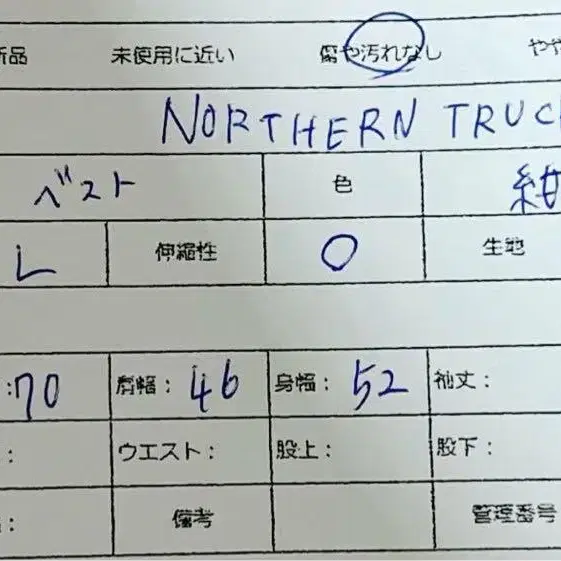 新品 未使用に近い 傷や汚れなし やや
NORTHERN TRUC
ベスト 色 紺
L 伸縮性 O 生地
:70 肩幅: 46 身幅: 52 袖丈:
: ウエスト: 股上: 股下:
: 備考 管理番号